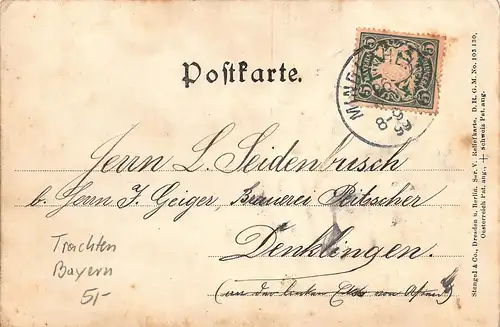 Postkarte.
5 BAYERN 5
Herrn L. Seidenbusch
b. Herrn J. Geiger, Brauerei
Denklingen.
Trachten
Bayern
5,-
Stengel & Co., Dresden u. Berlin. Ser. V. Reliefkarte, D. R. G. M. No. 103 130,
Oesterreich Pat. ang., Schweiz Pat. ang.